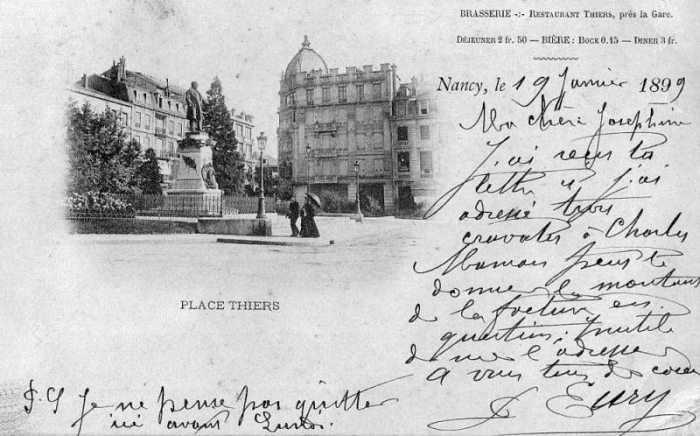 BRASSERIE -:- RESTAURANT THIERS, prés la Gare.
DÉJEUNER 2 fr. 50 — BIÈRE : BOCK 0.15 — DINER 3 fr.
Nancy, le 19 Janvier 1899
Ma chère Joséphine
J'ai reçu ta
lettre et j'ai
adressé trois
cravates à Charles
Maman peut te
donner le montant
de la facture en
question. Inutile
de me l'adresser
A vous tous de cœur
PLACE THIERS
P.S Je ne pense pas quitter
ici avant Lundi.